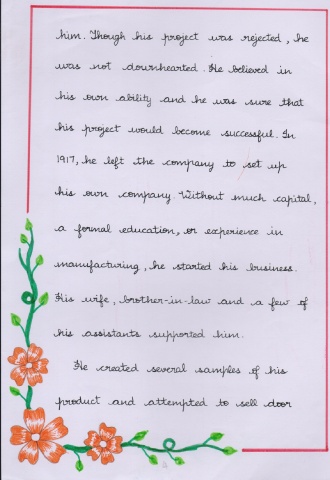 him. Though his project was rejected, he
was not downhearted. He believed in
his own ability and he was sure that
his project would become successful. In
1917, he left the company to set up
his own company. Without much capital,
a formal education, or experience in
manufacturing, he started his business.
His wife, brother-in-law and a few of
his assistants supported him.
He created several samples of his
product and attempted to sell door